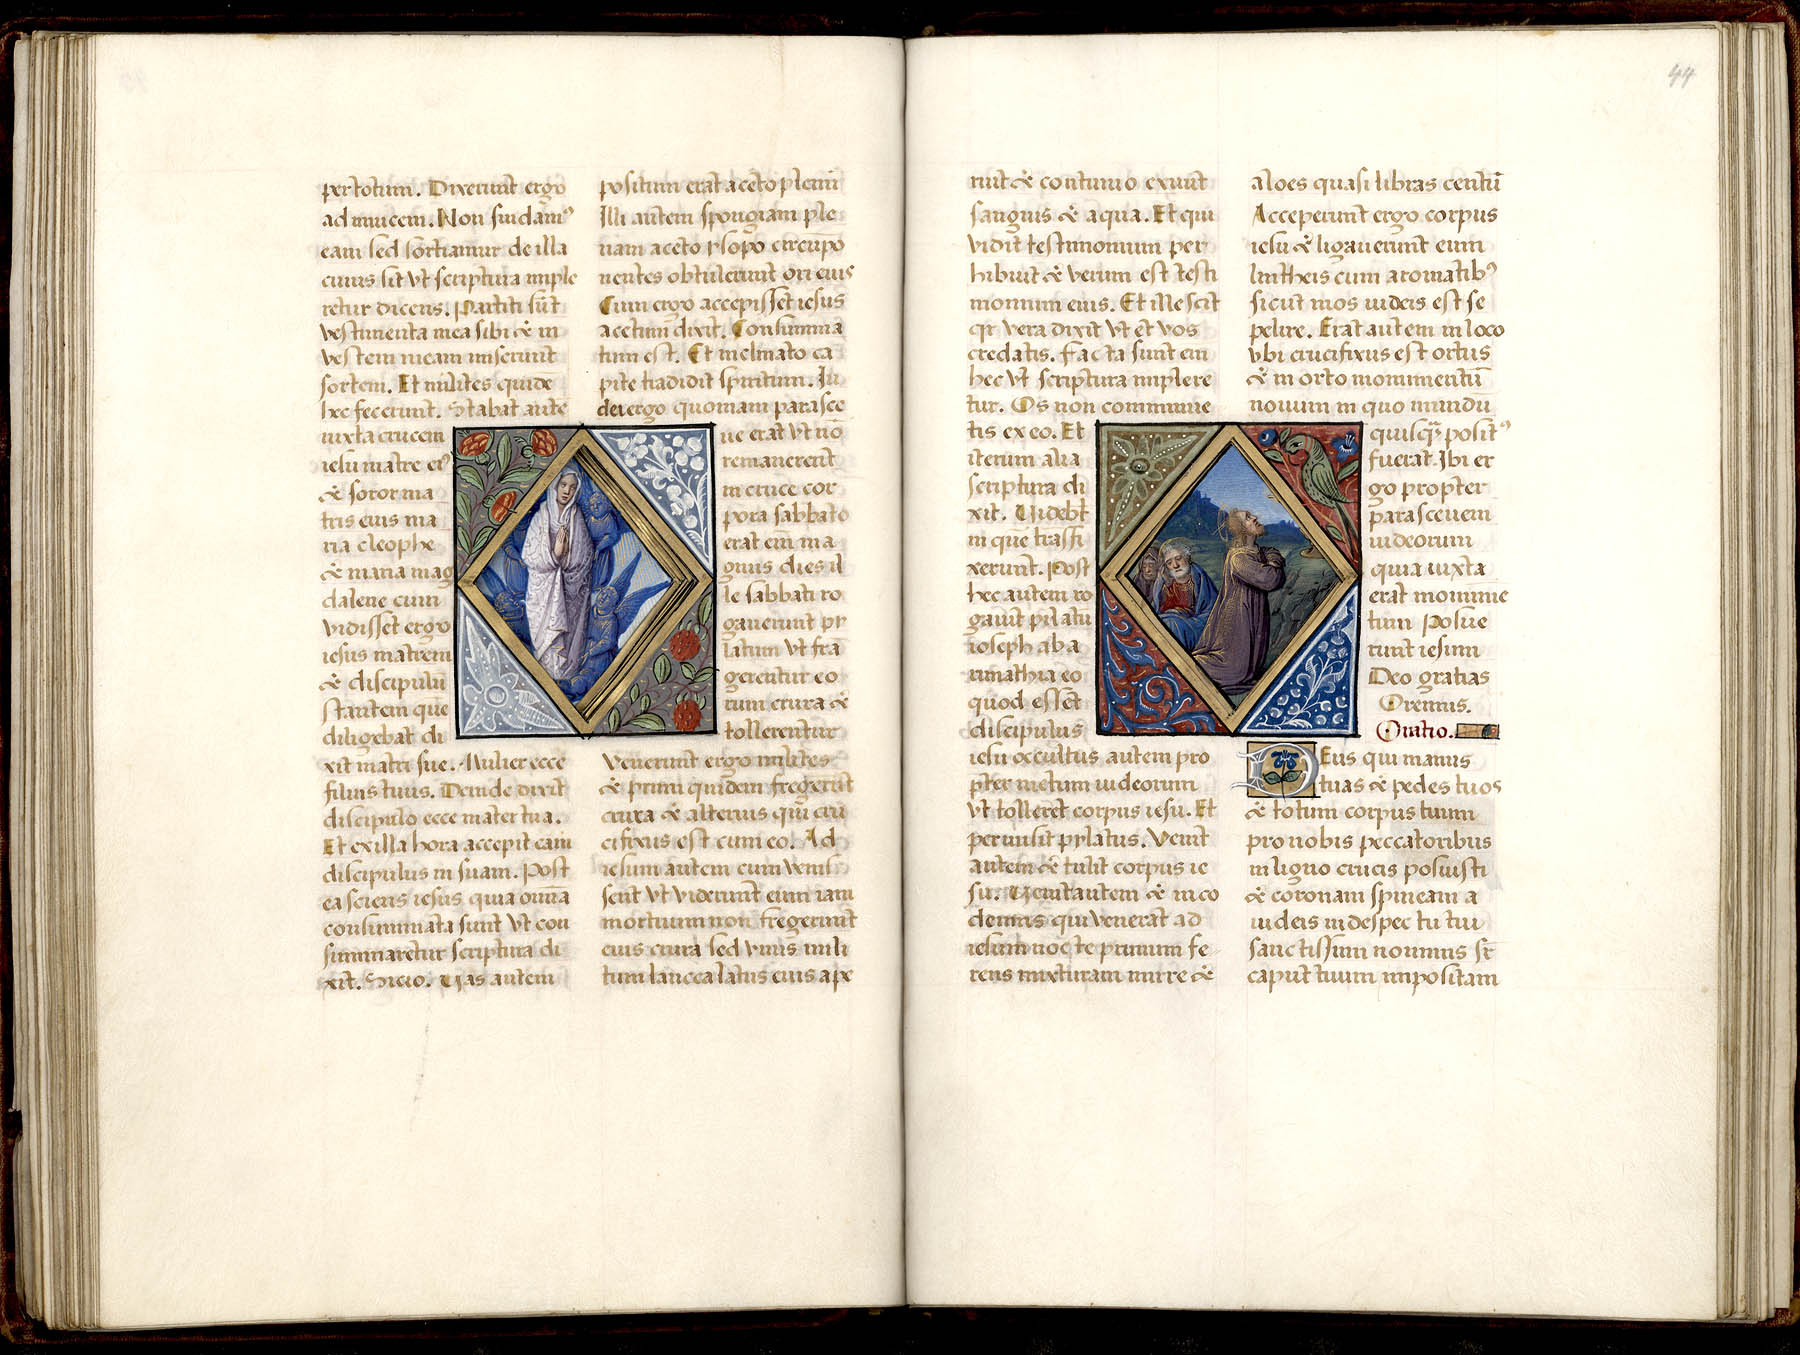 per totum. Dixerunt ergo
ad inuicem. Non sindam⁹
eam sed sortiamur de illa
cuius sit vt scriptura imple
retur dicens. Partiti sūt
vestimenta mea sibi & in
vestem meam miserunt
sortem. Et milites quidē
hec fecerunt. Stabat aute
iuxta crucem
iesu matre ei⁹
& soror ma
tris eius ma
ria cleophe
& maria mag
dalene cum
vidisset ergo
iesus matrem
& discipulū
stantem que
diligebat di
xit matri sue. Mulier ecce
filius tuus. Deinde dixit
discipulo ecce mater tua.
Et ex illa hora accepit eam
discipulus in suam. Post
ea sciens iesus quia om̄a
consummata sunt vt con
summaretur scriptura di
xit. Sicio. Vas autem
positum erat aceto pleni
Illi autem spongiam ple
nam aceto ysopo circūpo
nentes obtulerunt ori eius
Cum ergo accepisset iesus
acetum dixit. Consumma
tum est. Et inclinato ca
pite tradidit spiritum. Iu
dei ergo quoniam parasce
ue erat vt nō
remanerent
in cruce cor
pora sabbato
erat em̄ ma
gnus dies il
le sabbati ro
gauerunt py
latum vt frā
gerentur eo
rum crura &
tollerentur
Venerunt ergo milites
& primi quidem fregerūt
crura & alterius qui cru
cifixus est cum eo. Ad
iesum autem cum venis
sent vt viderunt eum iam
mortuum non fregerunt
eius crura sed vnus mili
tum lancea latus eius ape
44
ruit & continuo exiuit
sanguis & aqua. Et qui
vidit testimonium per
hibuit & verum est testi
monium eius. Et ille scit
qr vera dixit vt et vos
credatis. Facta sunt em̄
hec vt scriptura implere
tur. Os non comminue
tis ex eo. Et
iterum alia
scriptura di
xit. Videbūt
in quē trāsfi
xerunt. Post
hec autem ro
gauit pilatū
ioseph ab a
rimathia eo
quod esset
discipulus
iesu occultus autem pro
pter metum iudeorum
vt tolleret corpus iesu. Et
permisit pylatus. Venit
autem & tulit corpus ie
su. Venit autem & nico
demus qui venerat ad
iesum nocte primum fe
rens mixturam mirre &
aloes quasi libras centū
Acceperunt ergo corpus
iesu & ligauerunt eum
lintheis cum aromatib⁹
sicut mos iudeis est se
pelire. Erat autem in loco
vbi crucifixus est ortus
& in orto monumentū
nouum in quo nundū
quisq̄ posit⁹
fuerat. Ibi er
go propter
parasceuem
iudeorum
quia iuxta
erat monume
tum Posue
runt iesum
Deo gratias
Oremus.
Oratio.
Deus qui manus
tuas & pedes tuos
& totum corpus tuum
pro nobis peccatoribus
in ligno crucis posuisti
& coronam spineam a
iudeis in despectu tui
sanctissimi nominis sr
caput tuum impositam